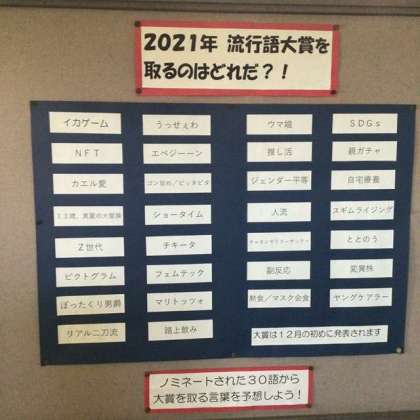 2021年 流行語大賞を
取るのはどれだ？！
イカゲーム
うっせぇわ
ウマ娘
ＳＤＧｓ
ＮＦＴ
エペジーーン
推し活
親ガチャ
カエル愛
ゴン攻め／ビッタビタ
ジェンダー平等
自宅療養
１３歳、真夏の大冒険
ショータイム
人流
スギムライジング
Ｚ世代
チキータ
チャタンヤラクーサンクー
ととのう
ピクトグラム
フェムテック
副反応
変異株
ぼったくり男爵
マリトッツォ
黙食／マスク会食
ヤングケアラー
リアル二刀流
路上飲み
大賞は１２月の初めに発表されます
ノミネートされた３０語から
大賞を取る言葉を予想しよう！